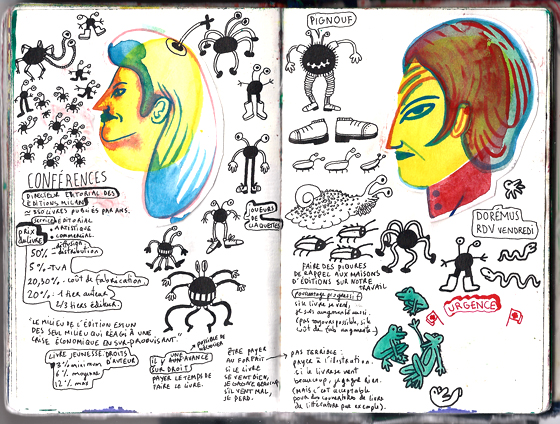 CONFÉRENCES
DIRECTEUR EDITORIAL DES
ÉDITIONS MILAN
≈ 350 LIVRES PUBLIÉS PAR ANS.
Service EDITORIAL
• ARTISTIQUE
• COMMERCIAL.
PRIX
DU LIVRE
diffusion
50% - distribution
5% - TVA
20,30% - coût de fabrication.
20% - 1 tier auteur
2/3 tiers éditeur.
"LE MILIEU DE L'ÉDITION EST UN
DES SEUL MILIEU QUI RÉAGI À UNE
CRISE ÉCONOMIQUE EN SUR-PRODUISANT."
LIVRE JEUNESSE DROITS
D'AUTEUR
3% minimum
6% moyenne
12% max
POSSIBLE DE
NÉGOCIER
IL Y A UNE AVANCE
SUR DROIT
PAYER LE TEMPS DE
FAIRE LE LIVRE.
ÊTRE PAYER
AU FORFAIT
SI LE LIVRE
SE VENT BIEN,
JE GAGNE
S'IL VENT MAL,
JE PERD.
JOUEURS
DE
CLAQUETTES
PIGNOUF
FAIRE DES PIQURES
DE RAPPEL AUX MAISONS
D'ÉDITIONS SUR NOTRE
TRAVAIL
Pourcentage progressif
si le livre se vend,
je suis augmenté aussi.
(pas toujours possible, si
coût de fab augmente)
PAS TERRIBLE
payer à l'illustration.
si le livre se vent
beaucoup, je gagne rien.
(mais c'est acceptable
pour des couvertures de livres
de littérature par exemple).
DORÉMUS
RDV VENDREDI
URGENCE